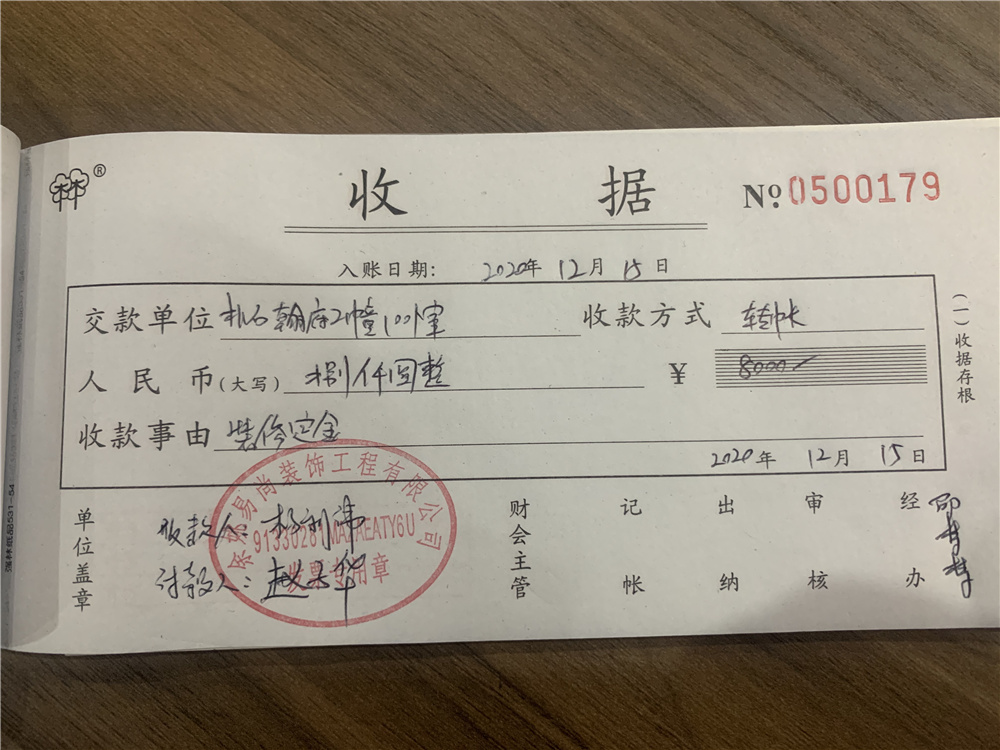 林®
收据
№ 0500179
入账日期: 2020年 12月 15日
交款单位 收款方式 转帐
人民币(大写) 捌仟圆整 ¥ 8000
收款事由 装修定金
2020年 12月 15日
(一)收据存根
单位盖章
收款人: 杨利
付款人: 赵
余姚易尚装饰工程有限公司
发票专用章
财会主管 记帐 出纳 审核 经办
强林纸品531-54